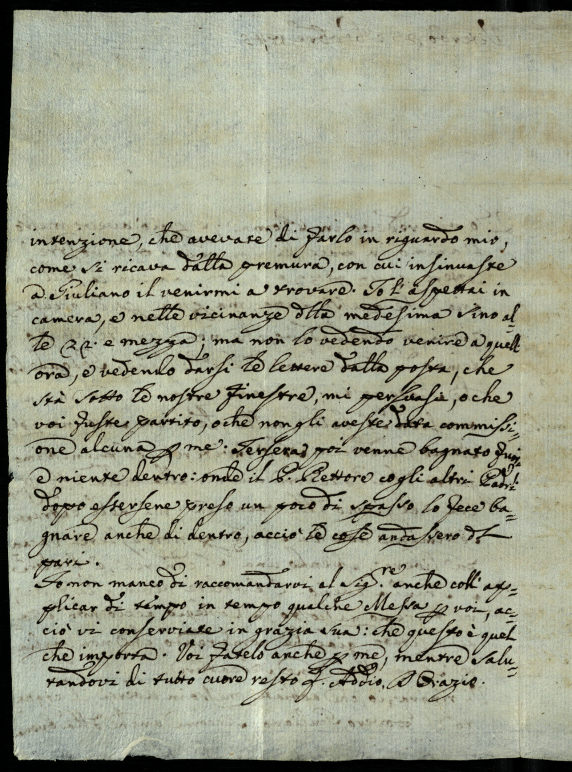 intenzione, che avevate di farlo in riguardo mio,
come si ricava dalla premura, con cui insinuaste
a Giuliano il venirmi a trovare. Io l'aspettai in
camera, e nelle vicinanze della medesima sino al=
le 22. e mezza; ma non lo vedendo venire a quell'
ora, e vedendo darsi le lettere dalla posta, che
stà sotto le nostre finestre, mi persuasi, o che
voi fuste partito, o che non gli aveste data commissi=
one alcuna p me: Iersera poi venne bagnato fuori
e niente dentro: onde il P. Rettore cogli altri Padri
dopo essersene preso un poco di spasso, lo fece ba=
gnare anche di dentro, acciò le cose andassero del
pari.
Io non manco di raccomandarvi al Sig.re anche coll' ap=
plicar di tempo in tempo qualche Messa p voi, ac=
ciò vi conserviate in grazia sua: che questo è quel
che importa. Voi fatelo anche p me, mentre salu=
tandovi di tutto cuore resto Addio, Orazio.